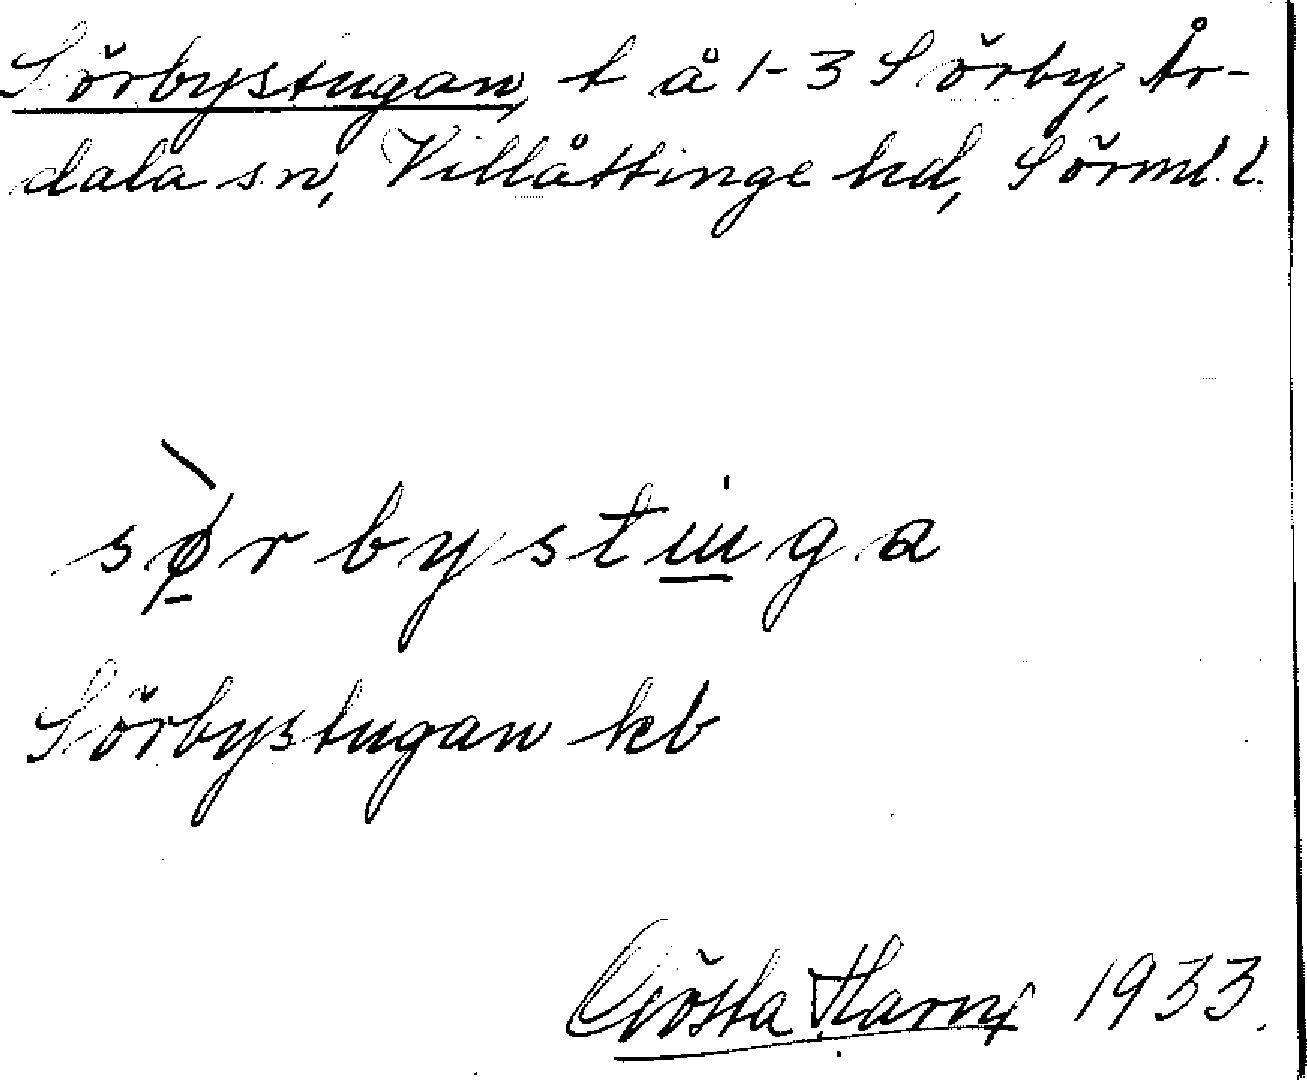 Sörbystugan, t å 1-3 Sörby, År-
dala sn, Villåttinge hd, Sörml. l.
sørbystuga
Sörbystugan kb
Gösta 1933.